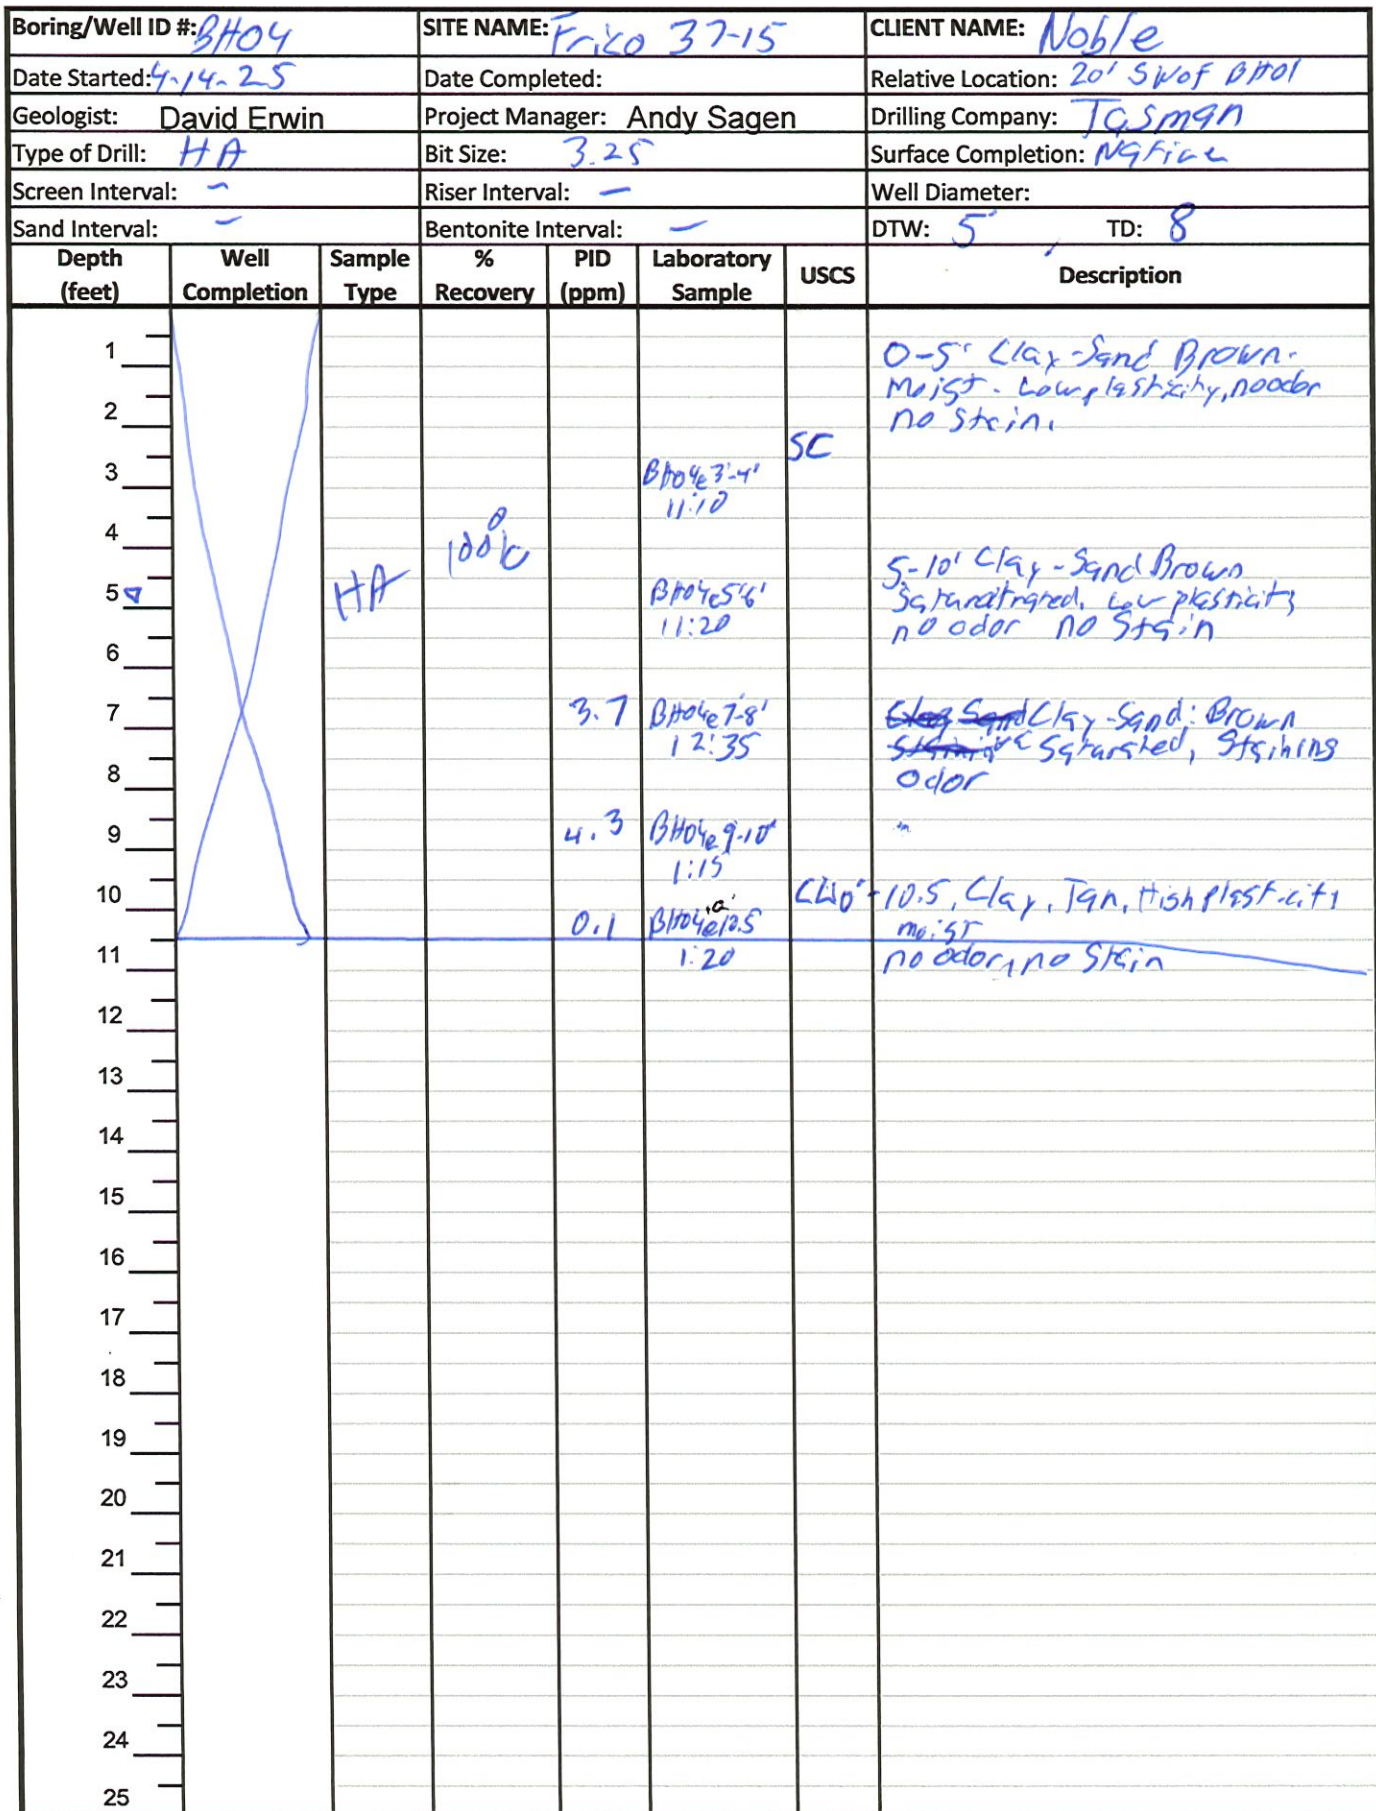 Boring/Well ID #: BH04 SITE NAME: Frico 37-15 CLIENT NAME: Noble
Date Started: 4-14-25 Date Completed: Relative Location: 20' SW of BH01
Geologist: David Erwin Project Manager: Andy Sagen Drilling Company: Tasman
Type of Drill: HA Bit Size: 3.25 Surface Completion: Native
Screen Interval: - Riser Interval: - Well Diameter:
Sand Interval: - Bentonite Interval: - DTW: 5' TD: 8
Depth (feet) Well Completion Sample Type % Recovery PID (ppm) Laboratory Sample USCS Description
1 0-5' Clay-Sand Brown.
Moist. Low plasticity, no odor
2 no stain.
SC
3 BH04@3'-4'
11:10
4 100%
5-10' Clay-Sand Brown
5 HA BH04@5'6' Saturatrated. Low plasticity
11:20 no odor no Stain
6
7 3.7 BH04@7-8' Clay-Sand: Brown
12:35 Saturated, Staining
8 odor
9 4.3 BH04@9-10'
1:15
10 10'-10.5, Clay, Tan, High plasticity
0.1 BH04@10.5 moist
11 1:20 no odor, no Stain
12
13
14
15
16
17
18
19
20
21
22
23
24
25